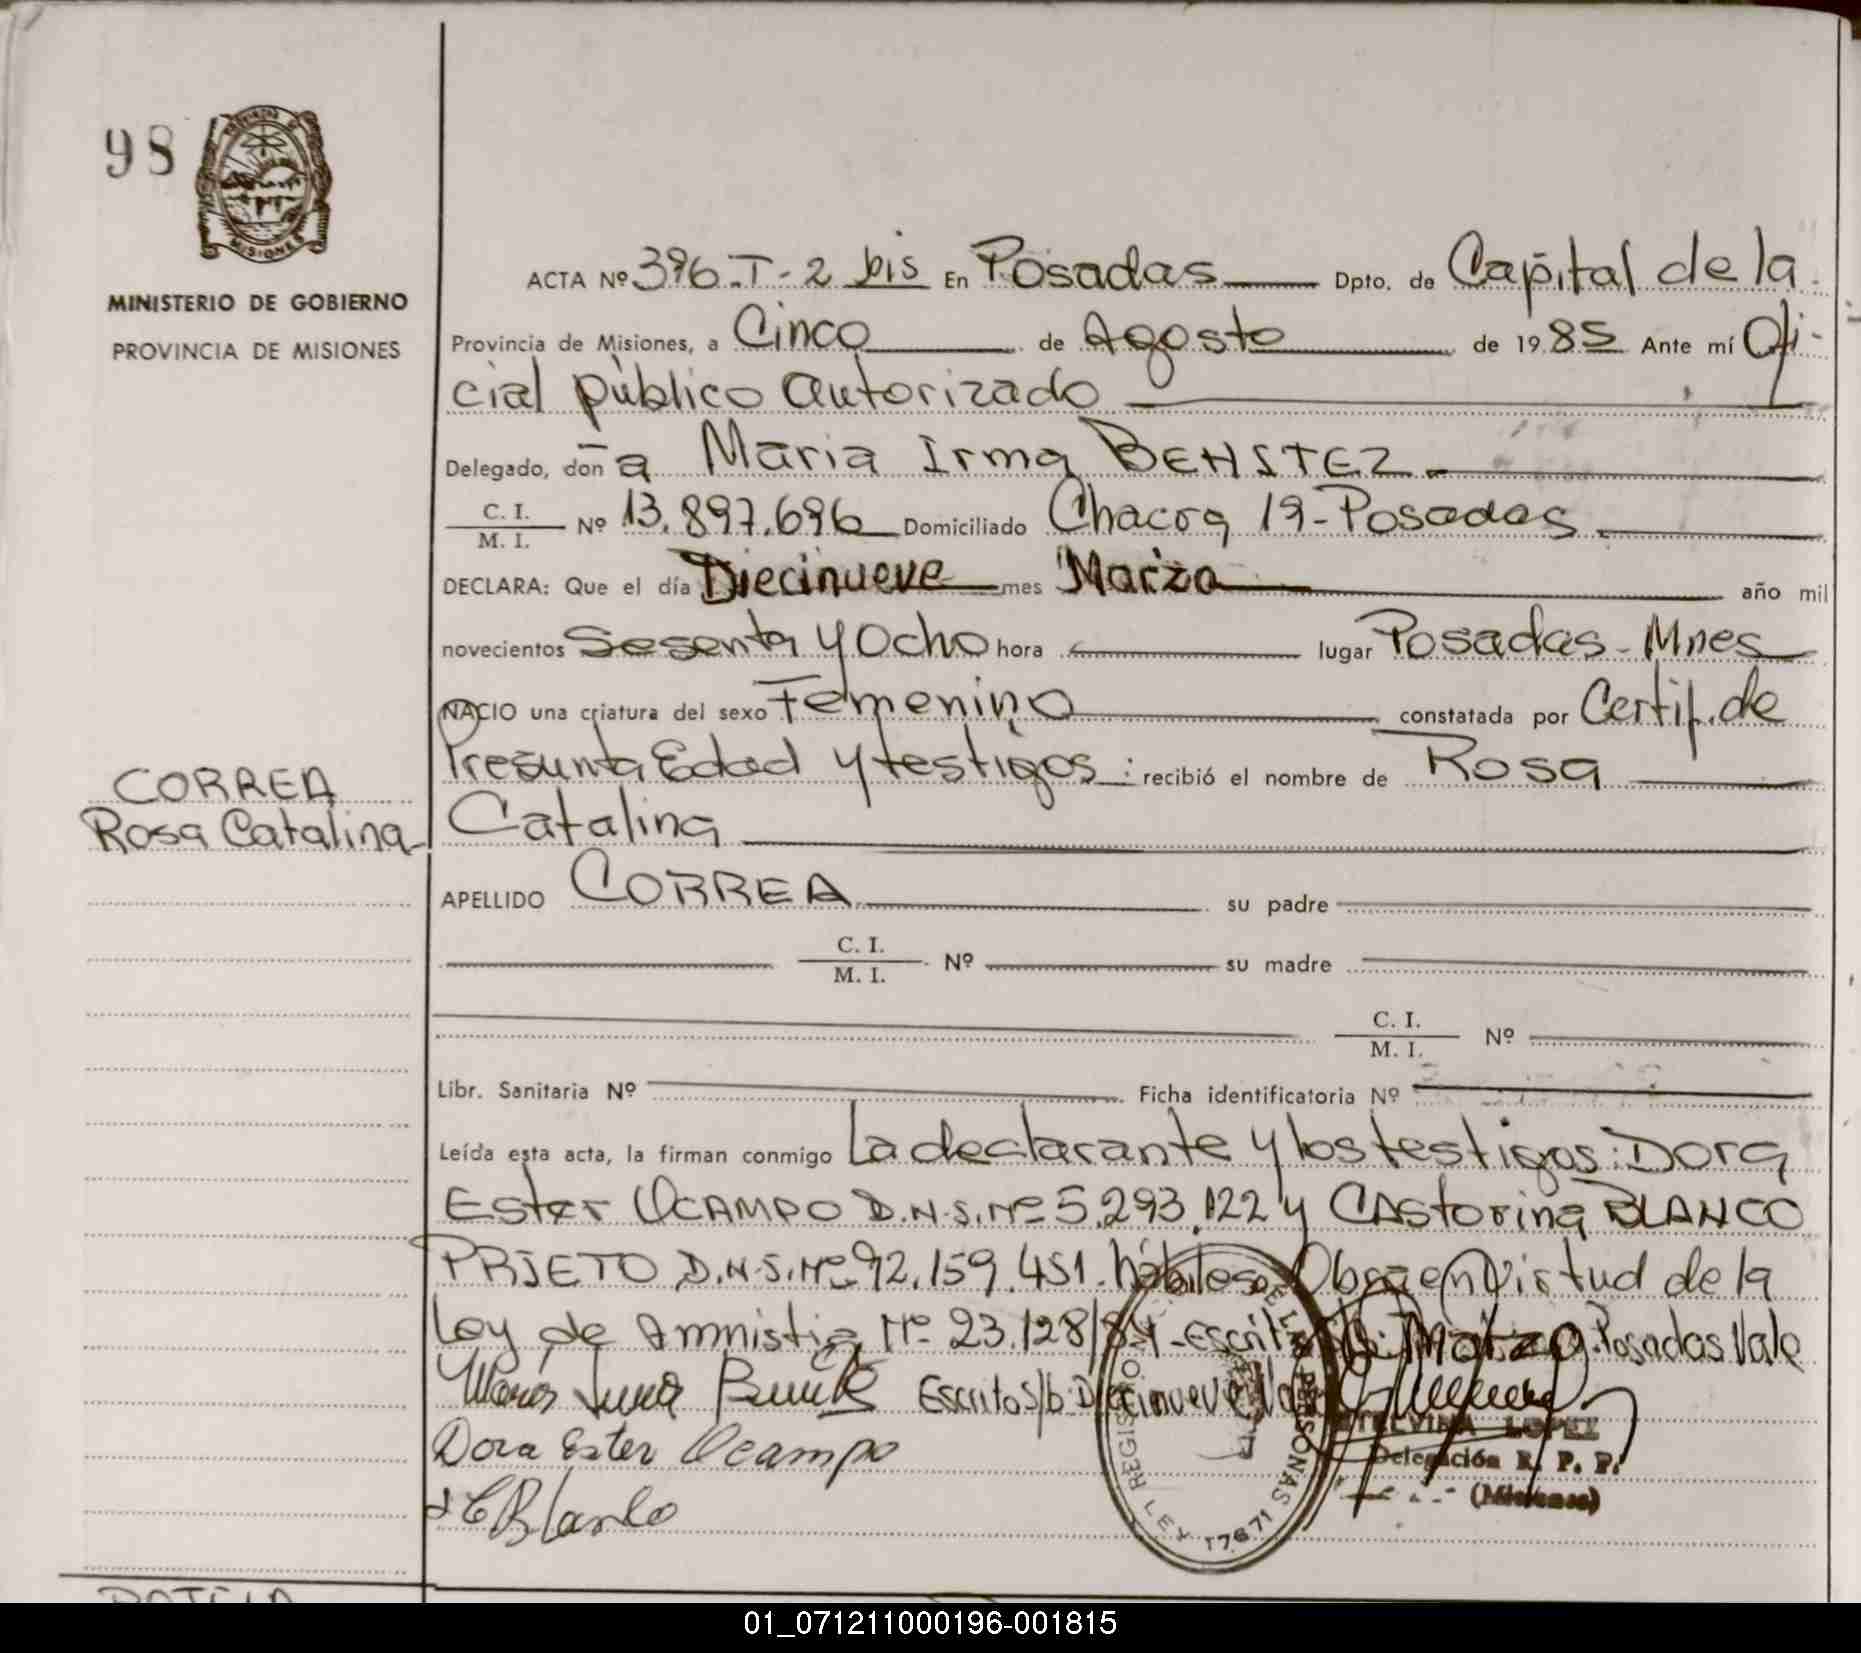 98
PROVINCIA DE
MISIONES
MINISTERIO DE GOBIERNO
PROVINCIA DE MISIONES
CORREA
Rosa Catalina
ACTA Nº 396.T-2 bis En Posadas Dpto. de Capital de la
Provincia de Misiones, a Cinco de Agosto de 1985 Ante mí Ofi-
cial público autorizado
Delegado, don a Maria Irma BENITEZ.
C. I.
M. I. Nº 13.897.696 Domiciliado Chacra 19-Posadas
DECLARA: Que el día Diecinueve mes Marzo año mil
novecientos Sesenta y Ocho hora lugar Posadas-Mnes
NACIO una criatura del sexo Femenino constatada por Certif. de
Presunta Edad y testigos: recibió el nombre de Rosa
Catalina
APELLIDO CORREA su padre
C. I.
M. I. Nº su madre
C. I.
M. I. Nº
Libr. Sanitaria Nº Ficha identificatoria Nº
Leída esta acta, la firman conmigo La declarante y los testigos: Dora
Ester OCAMPO D.N.I. Nº 5.293.122 y CAstorina BLANCO
PRIETO D.N.I. Nº 92.159.451. hábiles. Obra en Virtud de la
Ley de Amnistia Nº 23.128/84-Escrito s/b: Marzo. Posadas Vale
Maria Irma Benitez Escrito s/b: Diecinueve Vale
Dora Ester Ocampo
C Blanco
REGISTRO DE LAS PERSONAS
LEY 17671
ETELVINA LOPEZ
Delegación R. P. P.
(Misiones)
01_071211000196-001815